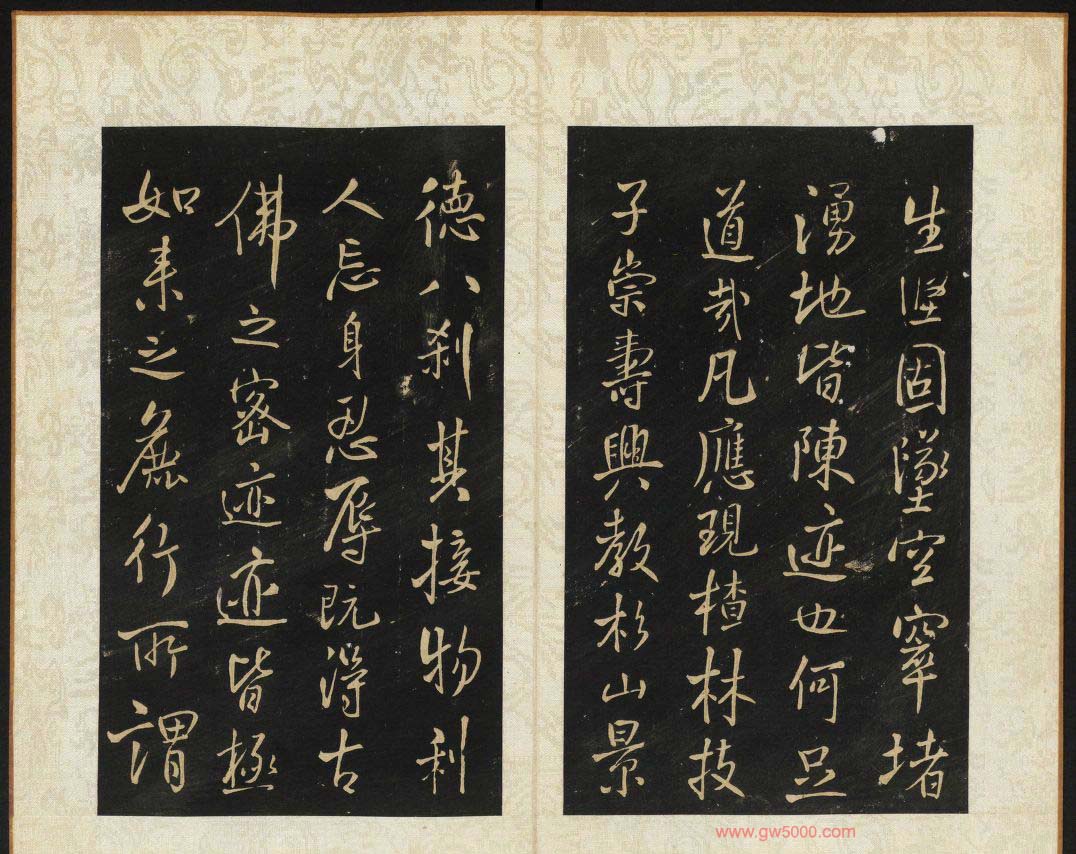 生堅固墜空窣堵
湧地皆陳迹也何足
道哉凡應現楂林技
子崇壽興教杉山景
德八刹其接物利
人忘身忍辱既得古
佛之密迹迹皆極
如来之麁行所謂
www.gw5000.com